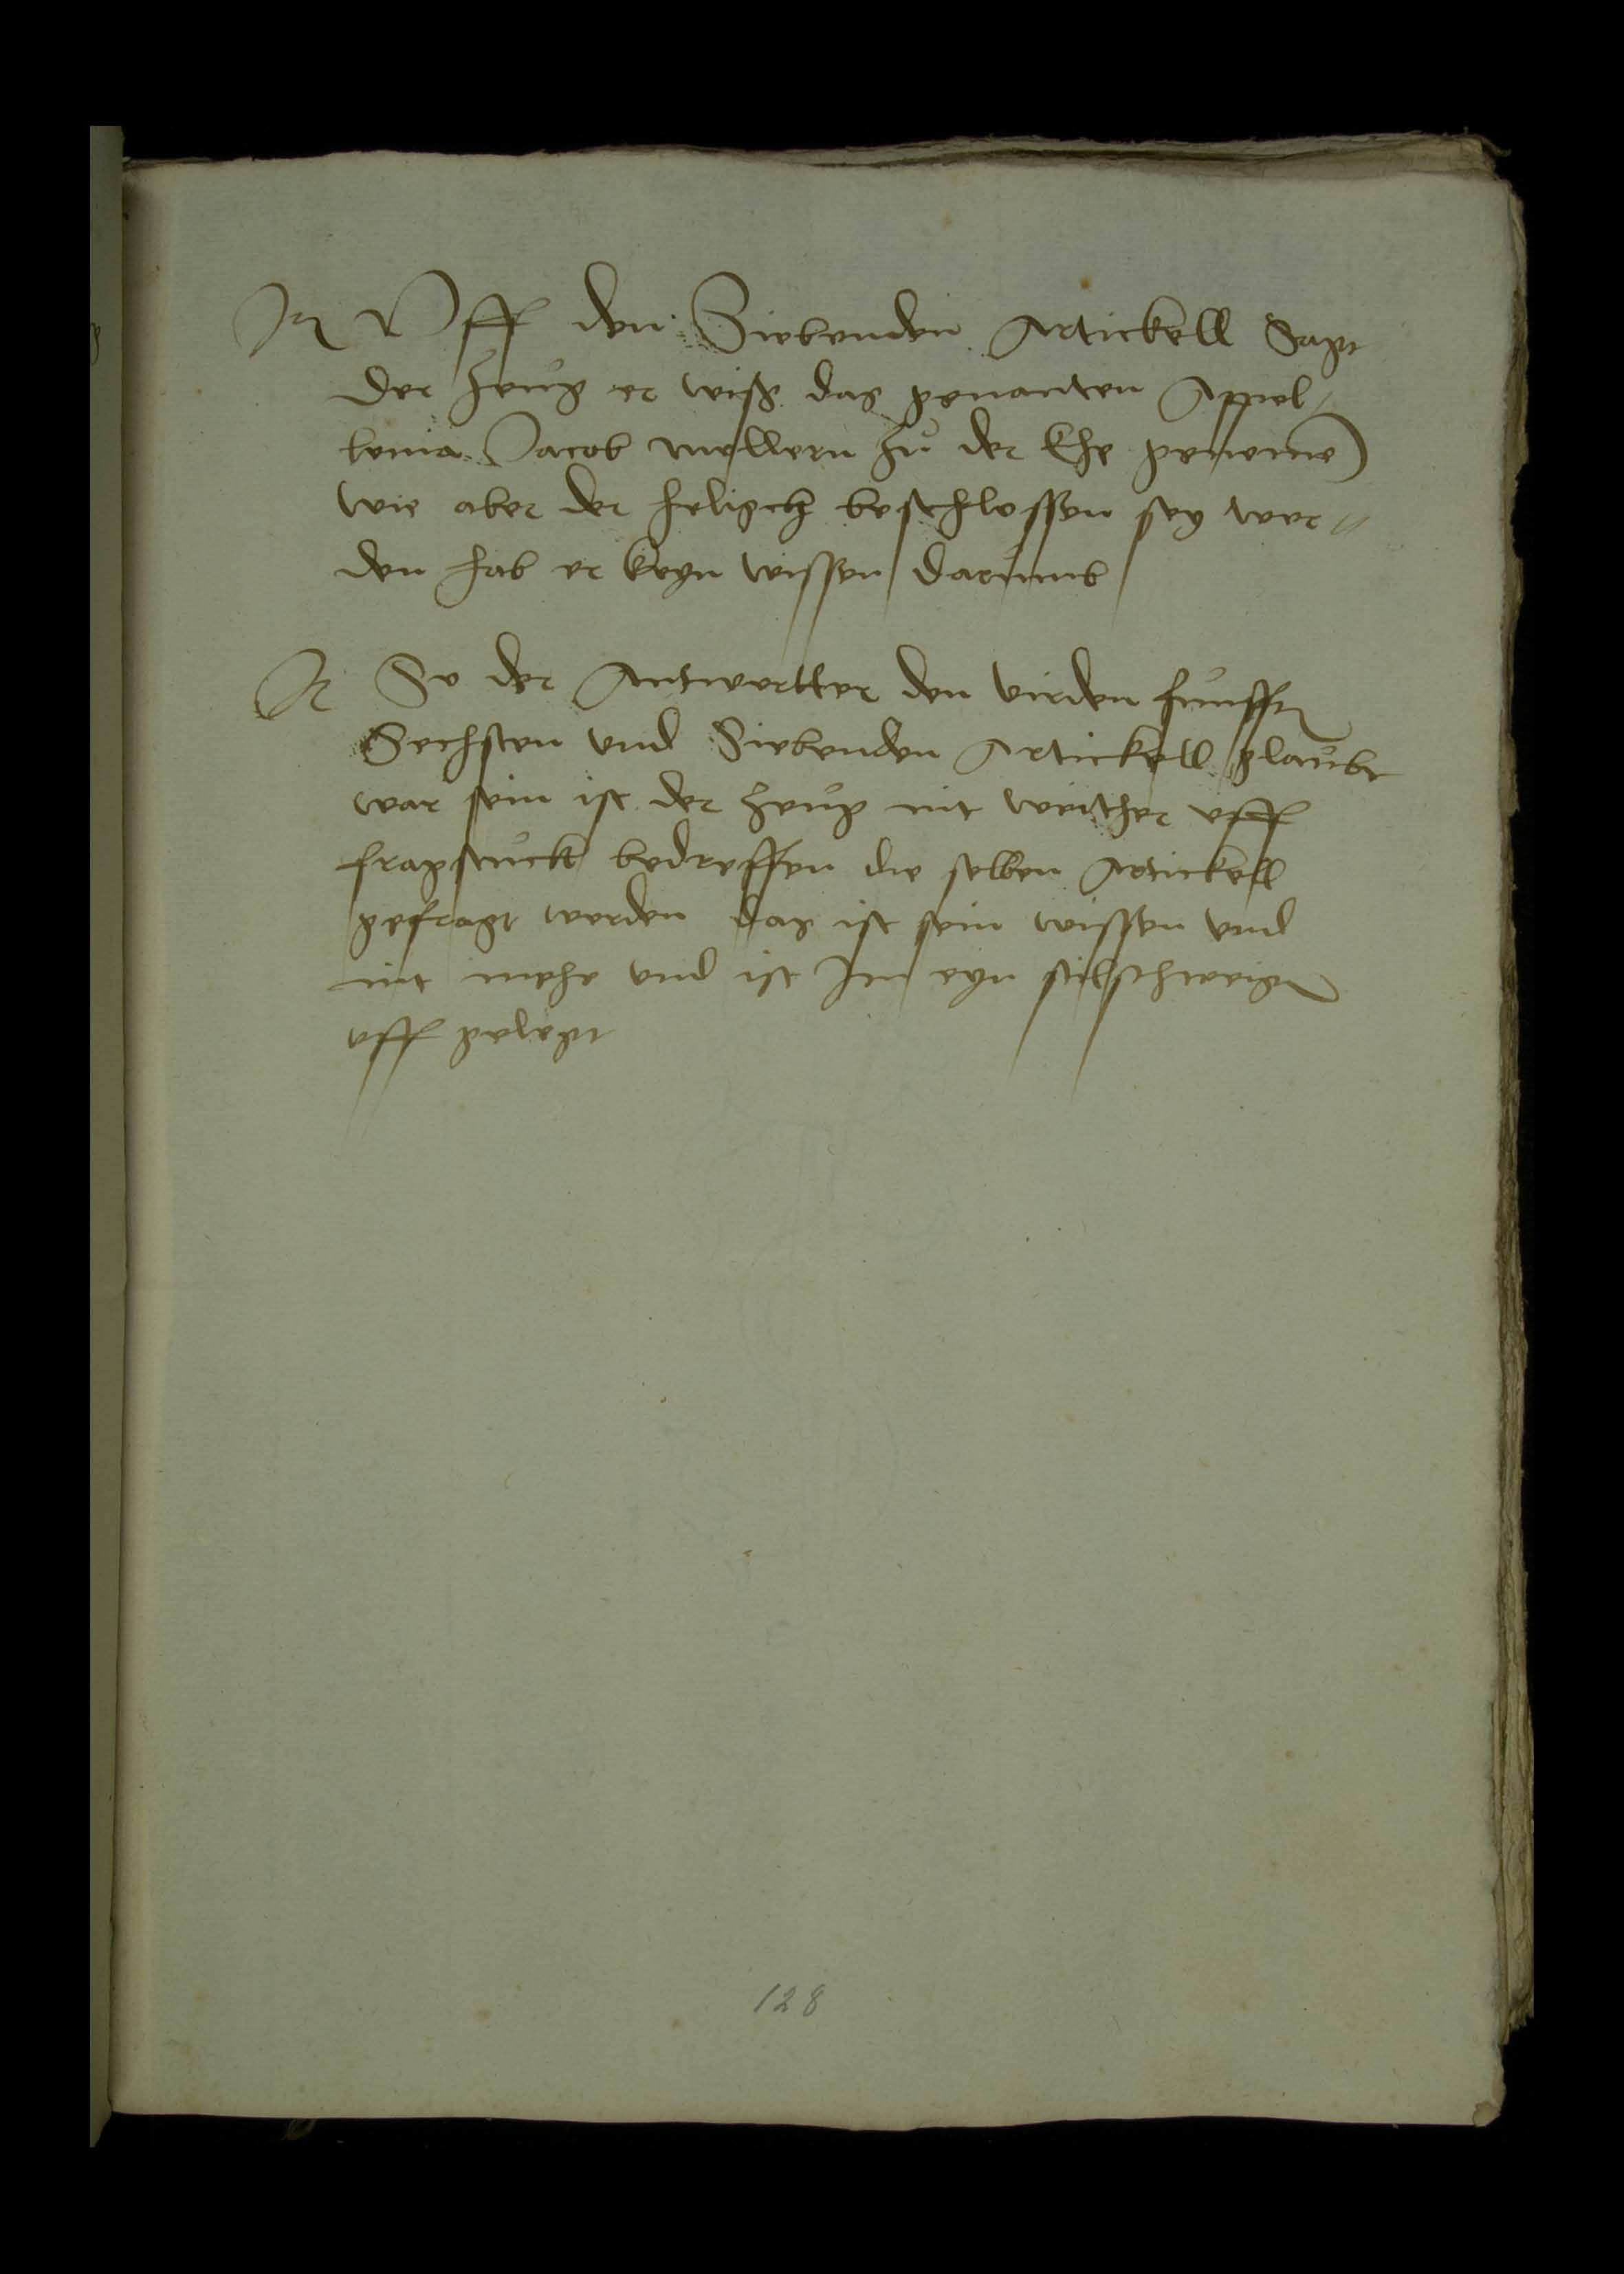 It Uff den Siebenden Artickell Sagt
Der Zeug er wiss das genanten Appel
lonia Jacob mellern zu der Ehe genomen
wie aber der heligch beschlossen sey wor
den hab er keyn wissen Darumb
It So der Antwortter den vierden funfften
Sechsten vnd Siebenden Artickell glaubt
war sein ist der Zeug nit weither vff
fragstuck bedreffen die selben Artickell
gefragt worden das ist sein wissen vnd
nit mehe vnd ist Im eyn stilschweigen
vff gelegt
128